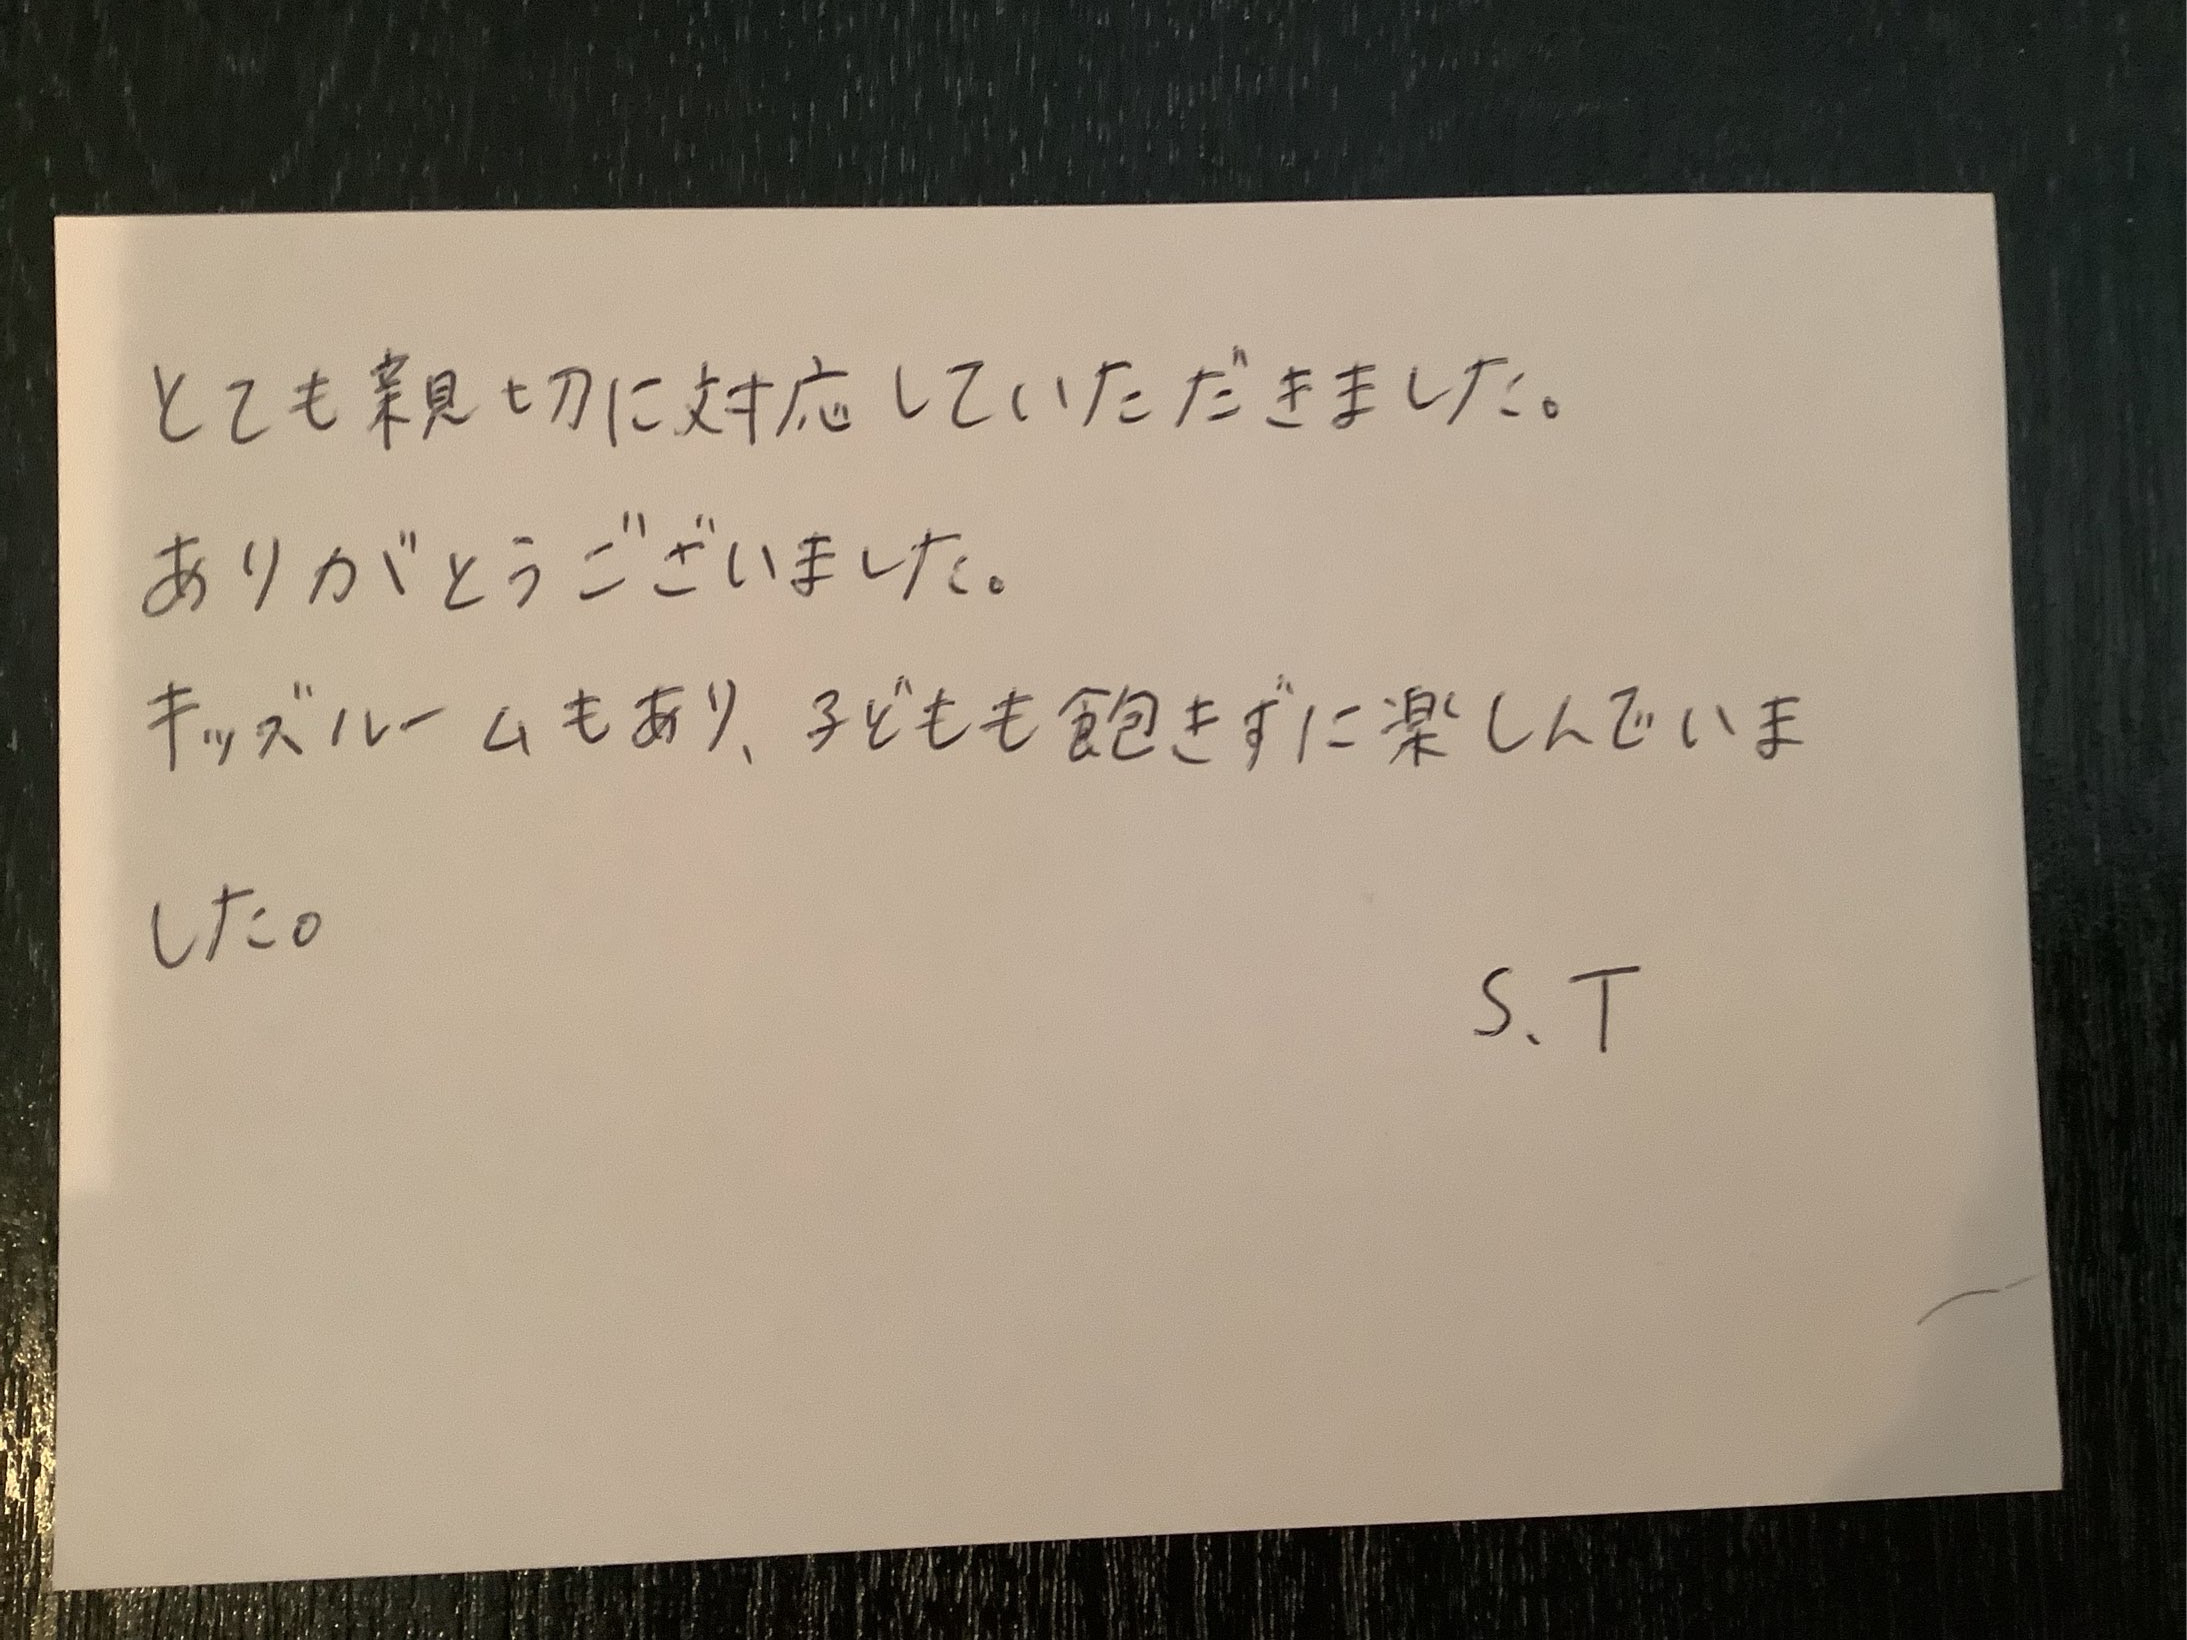 とても親切に対応していただきました。
ありがとうございました。
キッズルームもあり、子どもも飽きずに楽しんでいま
した。
S.T